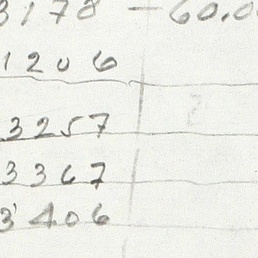 3178 — 60.0
1206
3257
3367
3406